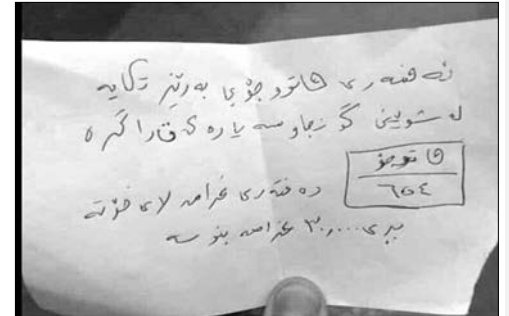 ئەفسەری هاتووچۆی بەڕێز تکایە
لە شوینی گونجاو سەیارەی ڕاگرە
هاتوچۆ
٦٥٤
دەفتەری غرامە لای خۆتە
بڕی ٣٠,٠٠٠ غرامە بنوسە